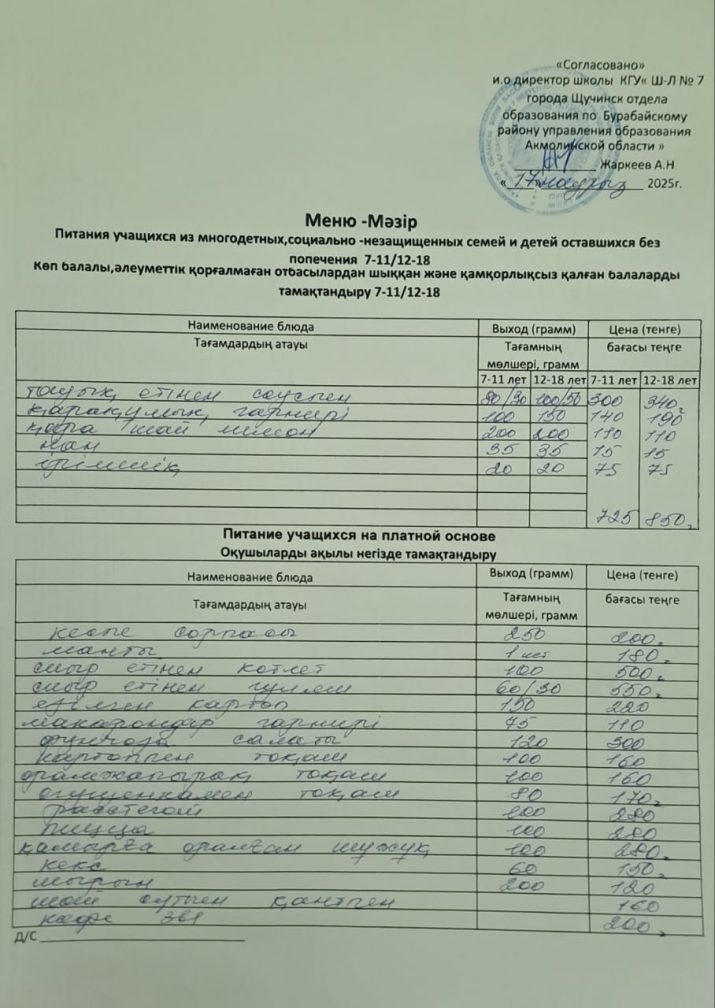 «Согласовано»
и.о директор школы КГУ« Ш-Л № 7
города Щучинск отдела
образования по Бурабайскому
району управления образования
Акмолинской области »
Жаркеев А.Н
« 17 » наурыз 2025г.
Меню -Мәзір
Питания учащихся из многодетных,социально -незащищенных семей и детей оставшихся без
попечения 7-11/12-18
Көп балалы,әлеуметтік қорғалмаған отбасылардан шыққан және қамқорлықсыз қалған балаларды
тамақтандыру 7-11/12-18
Наименование блюда Выход (грамм) Цена (тенге)
Тағамдардың атауы Тағамның мөлшері, грамм бағасы теңге
7-11 лет 12-18 лет 7-11 лет 12-18 лет
тауық етінен соусын 80/30 100/50 300 340
қарақұмық гарнирі 100 150 140 190
қара шай лимон 200 200 110 110
нан 35 35 15 15
ірімшік 20 20 75 75
725 850
Питание учащихся на платной основе
Оқушыларды ақылы негізде тамақтандыру
Наименование блюда Выход (грамм) Цена (тенге)
Тағамдардың атауы Тағамның мөлшері, грамм бағасы теңге
кеспе сорпасы 250 200
манты 1 шт 180
сиыр етінен котлет 100 500
сиыр етінен гуляш 60/30 550
езілген картоп 150 220
макарондар гарнирі 75 110
фунчоза салаты 120 300
картоппен тоқаш 100 160
орамжапырақ тоқаш 100 160
сгущенкамен тоқаш 80 170
расстегай 100 280
пицца 100 280
қамырға оралған шұжық 100 280
кекс 60 150
шырын 200 120
шай сүтпен қантпен 160
кофе 3в1 200
Д/С